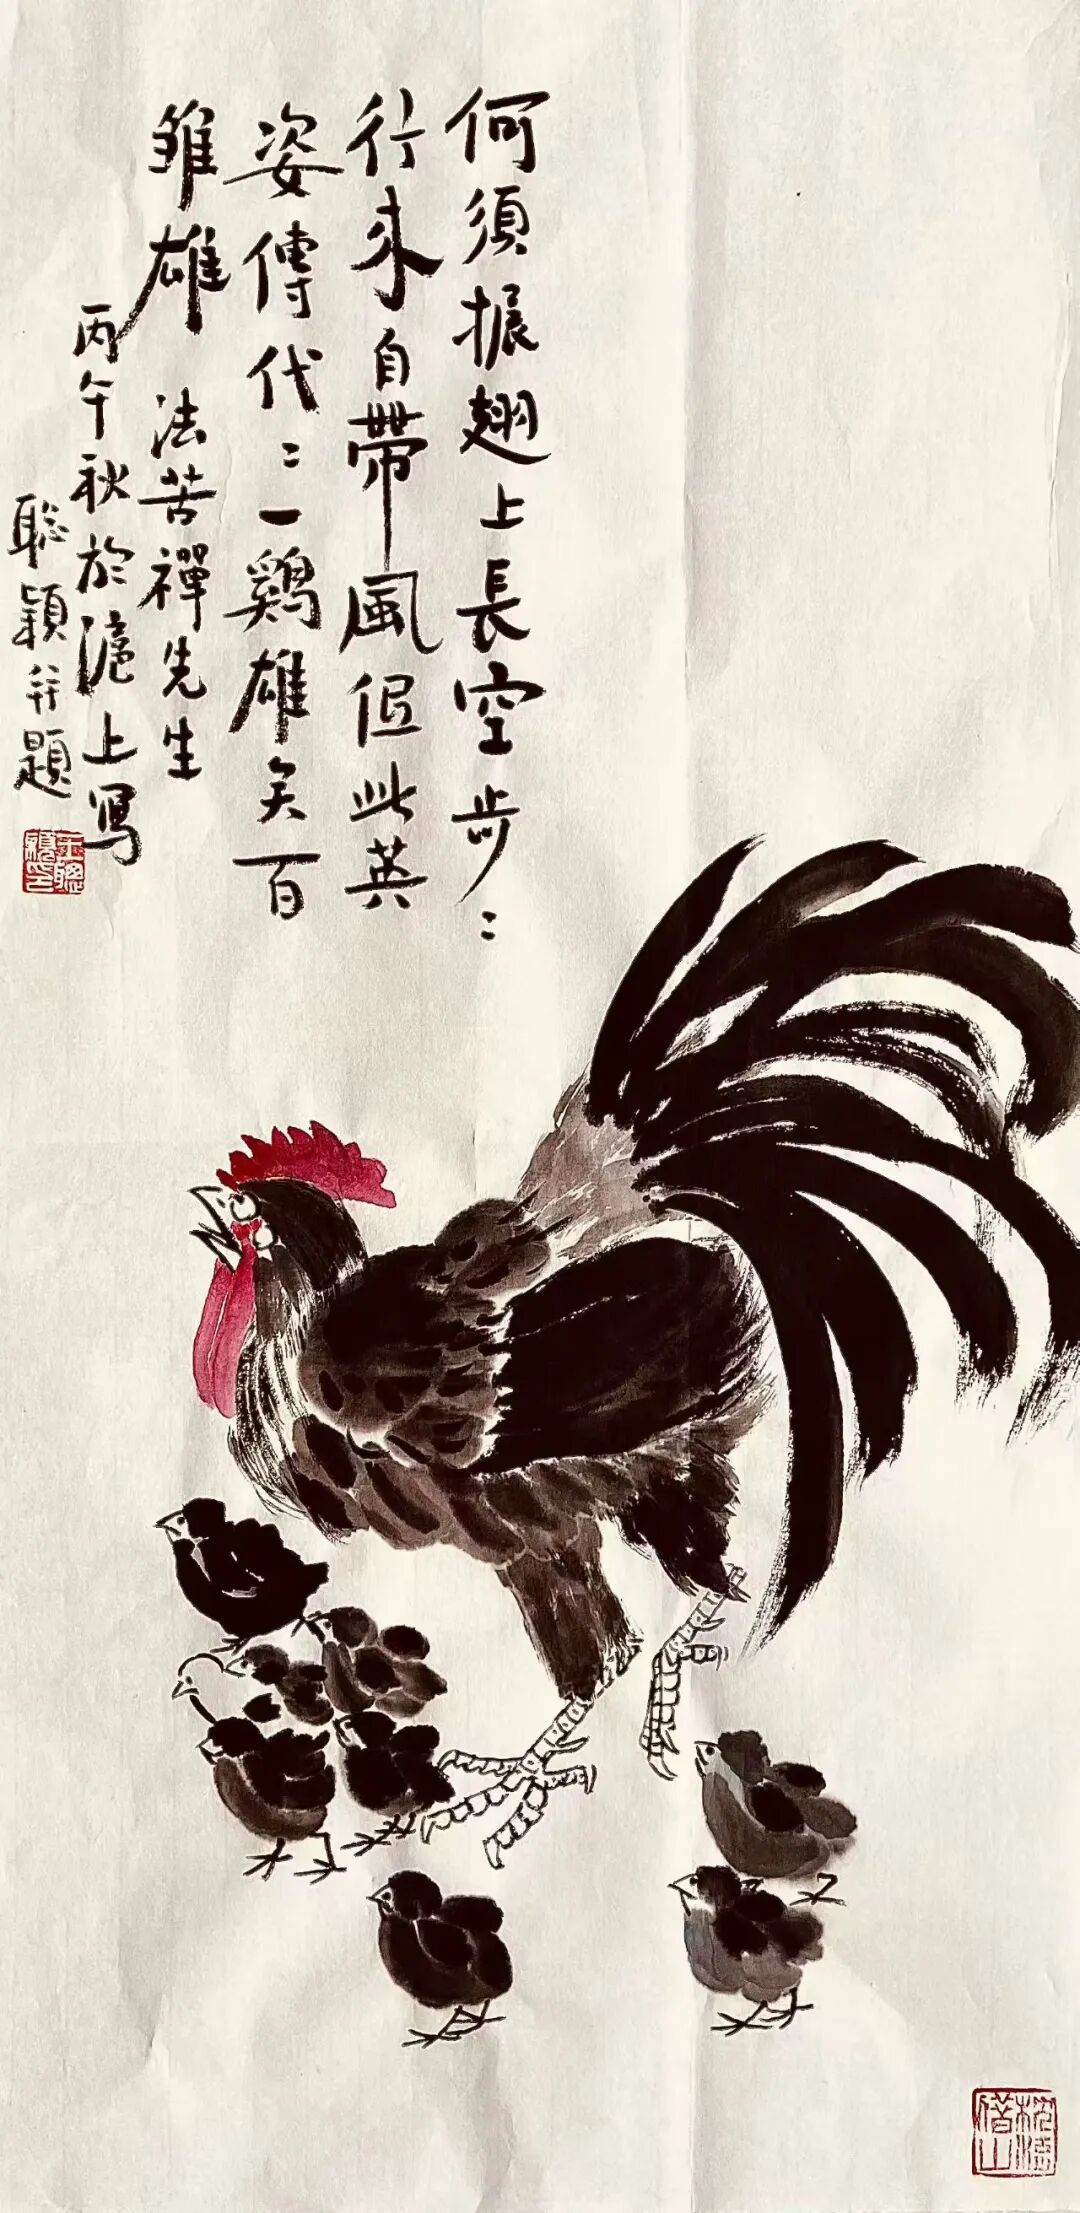 何須振翅上長空步々
行来自帶風但此英
姿傳代々一鷄雄矣百
雏雄 法苦禪先生
丙午秋於滬上寫
聡穎并題
王聰穎印